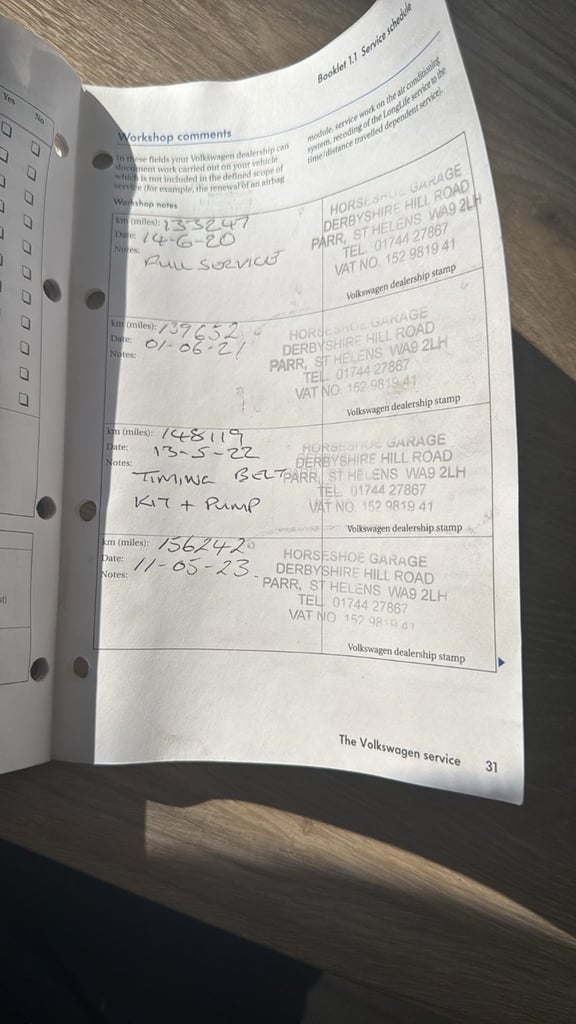 Yes
No
Booklet 1.1 Service schedule
Workshop comments
In these fields your Volkswagen dealership can
document work carried out on your vehicle
which is not included in the defined scope of
service (for example, the renewal of an airbag
module, service work on the air conditioning
system, recoding of the LongLife service to the
time/distance travelled dependent service).
Workshop notes
km (miles): 133247
Date: 14-6-20
Notes:
FULL SERVICE
HORSESHOE GARAGE
DERBYSHIRE HILL ROAD
PARR, ST HELENS WA9 2LH
TEL. 01744 27867
VAT NO. 152 9819 41
Volkswagen dealership stamp
km (miles): 139652
Date: 01-06-21
Notes:
HORSESHOE GARAGE
DERBYSHIRE HILL ROAD
PARR, ST HELENS WA9 2LH
TEL. 01744 27867
VAT NO. 152 9819 41
Volkswagen dealership stamp
km (miles): 148119
Date: 13-5-22
Notes:
TIMING BELT
KIT + PUMP
HORSESHOE GARAGE
DERBYSHIRE HILL ROAD
PARR, ST HELENS WA9 2LH
TEL. 01744 27867
VAT NO. 152 9819 41
Volkswagen dealership stamp
km (miles): 156242
Date: 11-05-23
Notes:
HORSESHOE GARAGE
DERBYSHIRE HILL ROAD
PARR, ST HELENS WA9 2LH
TEL. 01744 27867
VAT NO. 152 9819 41
Volkswagen dealership stamp
The Volkswagen service 31